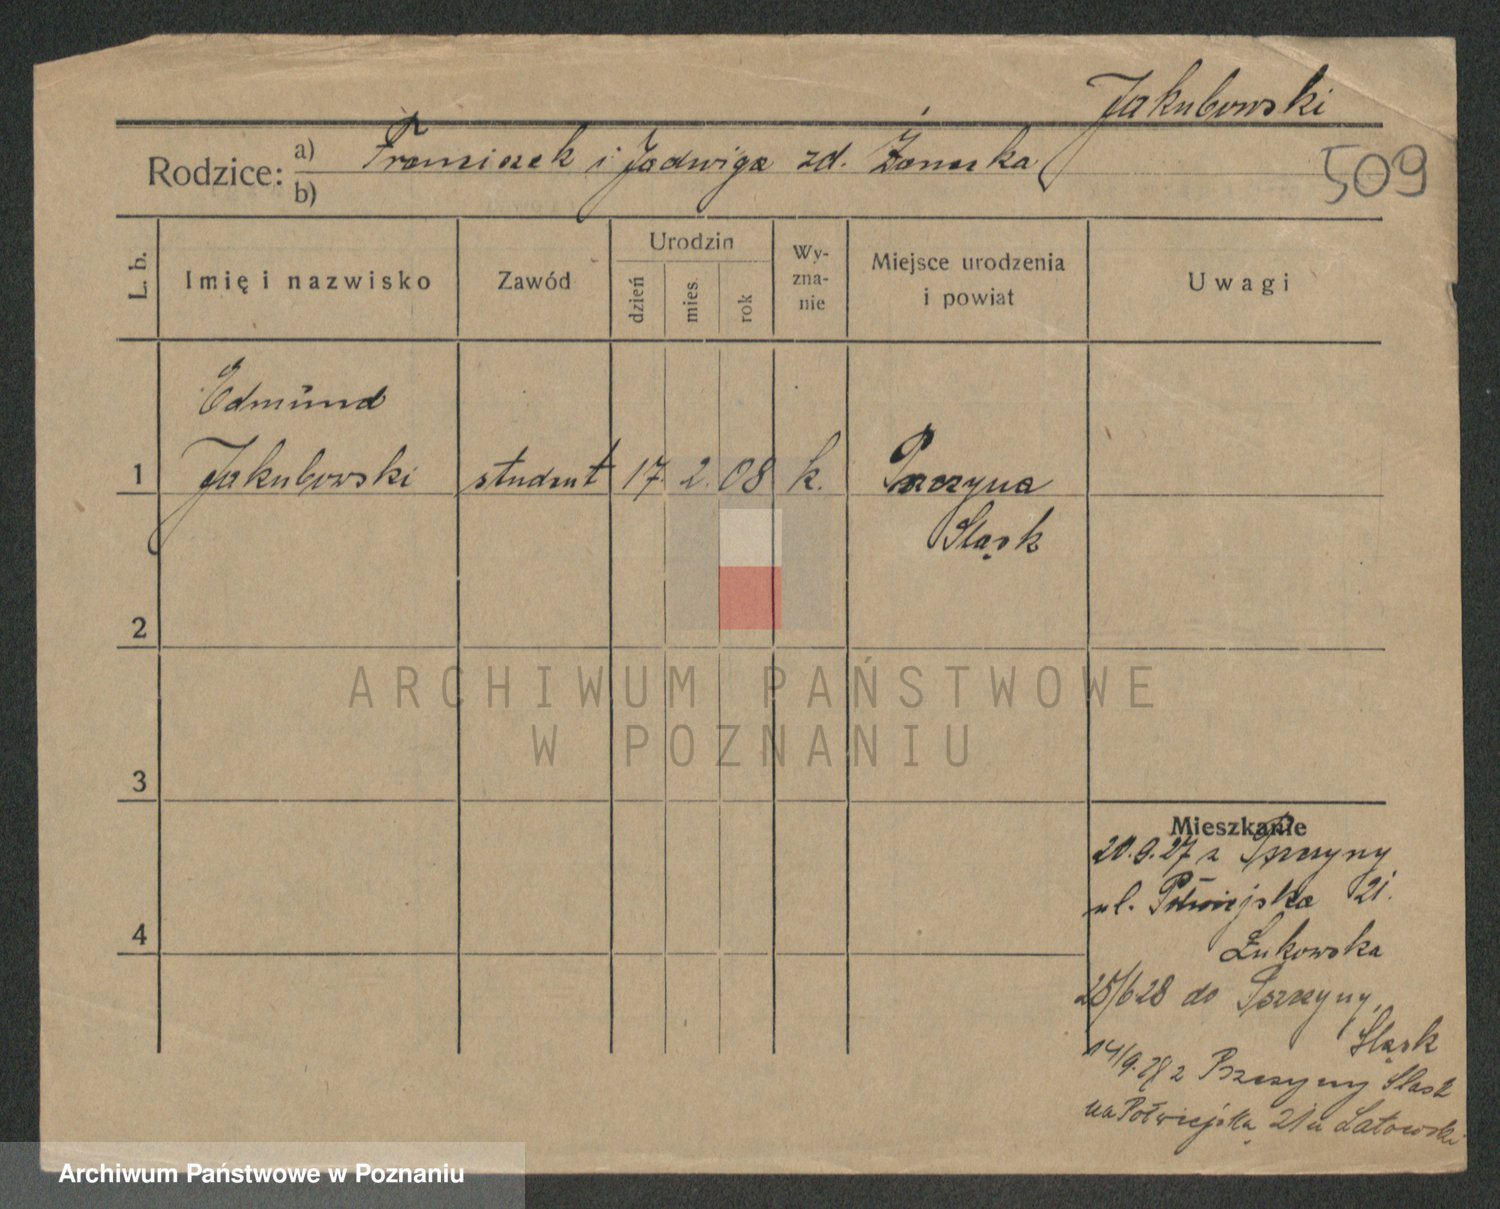 Jakubowski
Rodzice: a) Franciszek i Jadwiga zd.
b)
509
L. b. Imię i nazwisko Zawód Urodzin dzień mies. rok Wyznanie Miejsce urodzenia i powiat Uwagi
Edmund
1 Jakubowski student 17. 2. 08 k. Pszczyna
Śląsk
2
ARCHIWUM PAŃSTWOWE
W POZNANIU
3
Mieszkanie
20.9.27 z Pszczyny
ul. Półwiejska 21.
4
Żukowska
25/6 28 do Pszczyny,
Śląsk
14/9.28 z Pszczyny Śląsk
na Półwiejską 21 u
Archiwum Państwowe w Poznaniu